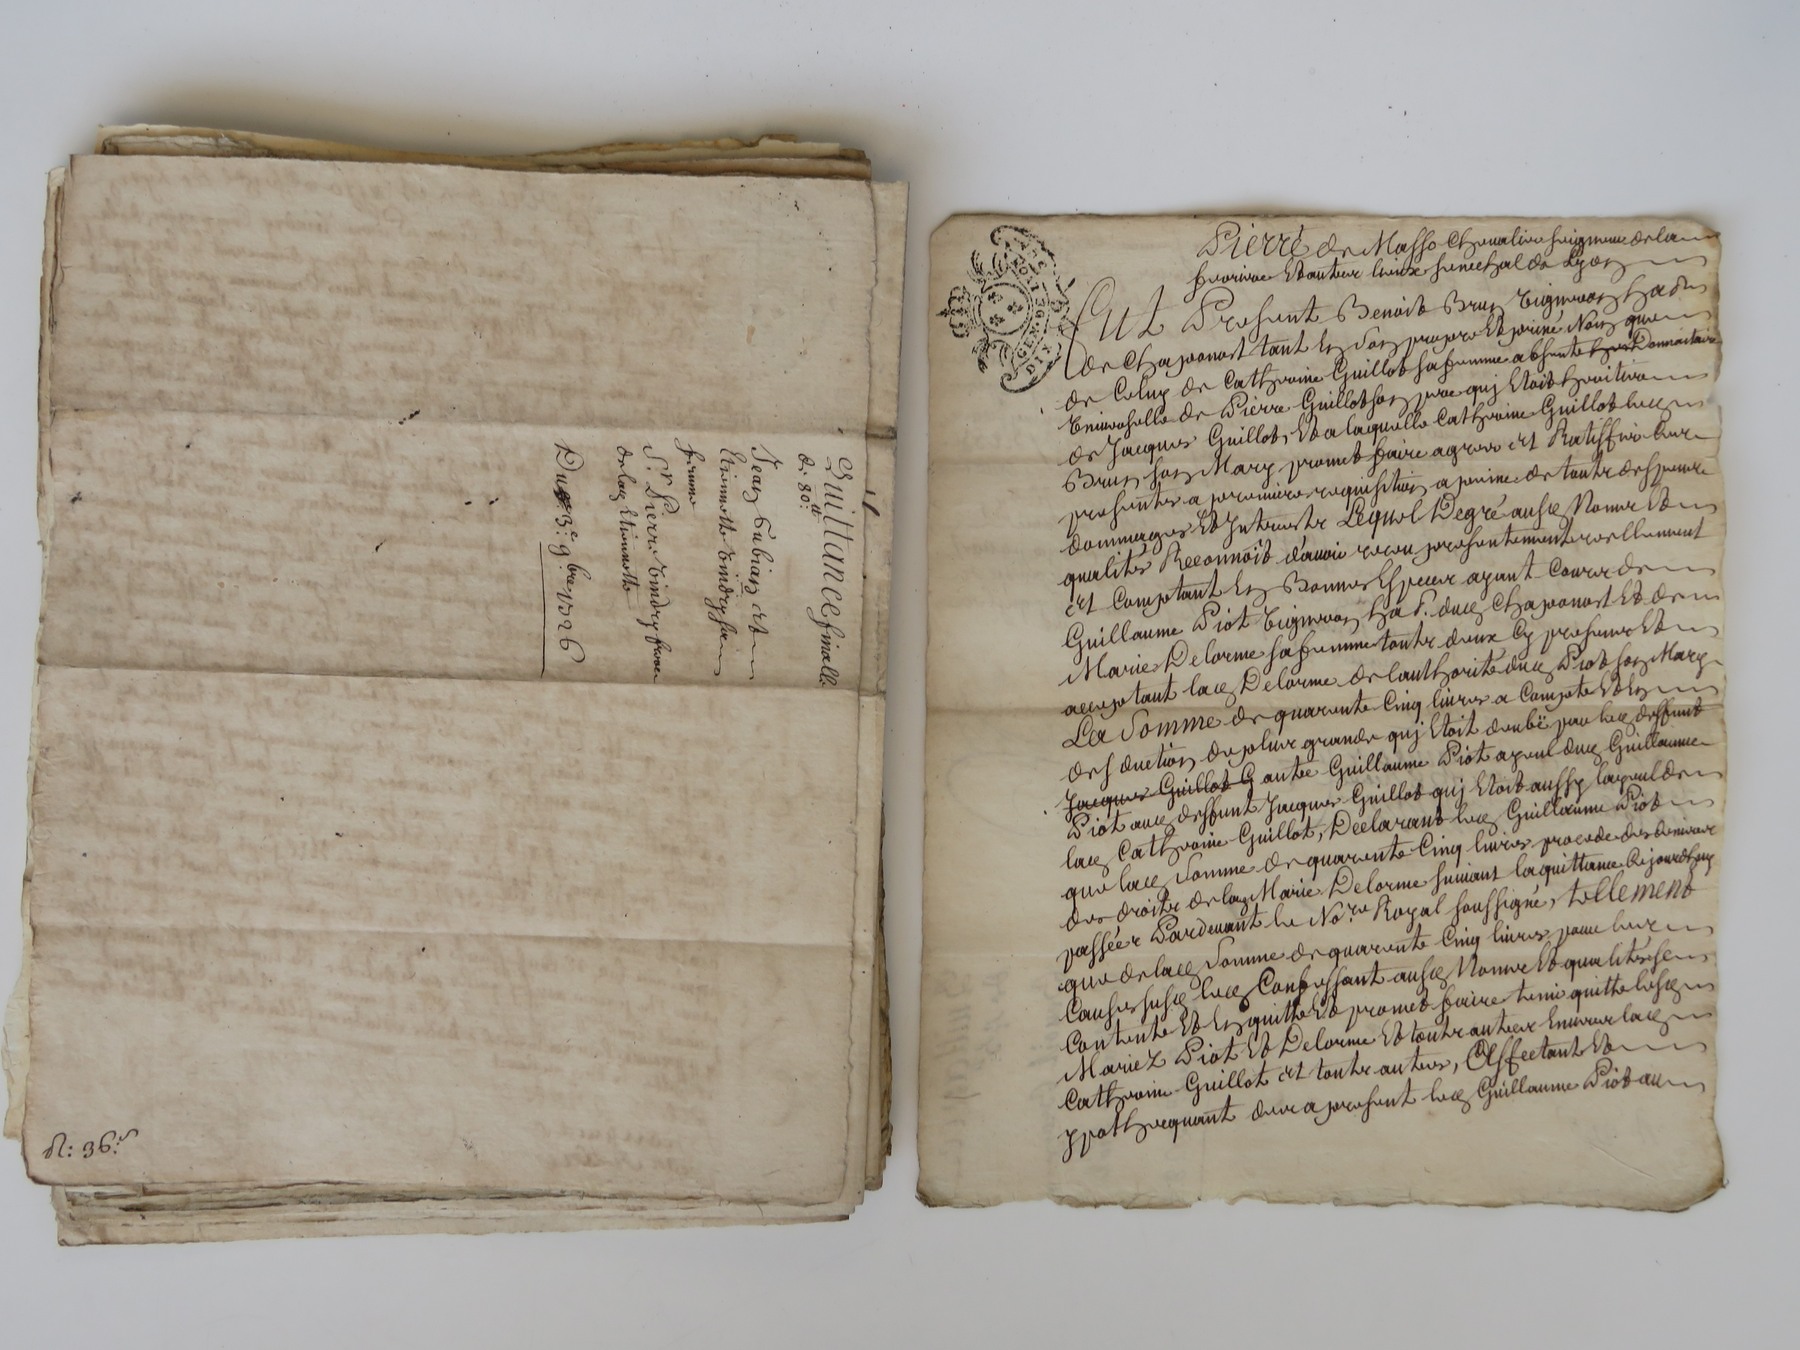 Quittance finalle
de 80ᵗᵗ
Jean Fubian et
Etiennette Tindry sa
femme
Sʳ. Pierre Tindry frere
de lad Etiennette
Du 3ᵉ. 9.bre 1726
n: 36:
GEN DE LION
DIX
Pierre de Masso Chevalier seigneur de la
ferriere Et autres lieux senechal de Lyon
Fut Present Benoit Brun Vigneron ha
de Chaponost tant En son propre Et privé Nom que
de Celuy de Catherine Guillot sa femme absente Donnataire
Universelle de Pierre Guillot son pere quj Etoit heritier
de Jacques Guillot, Et a laquelle Catherine Guillot led
Brun son Mary promet faire agreer et Ratiffier les
presentes a premiere requisition a peine de touts despens
dommages Et Interests Lequel De gré ausd Noms Et
qualités Reconnoît d'avoir receu presentement reellement
et Comptant En Bonnes Especes ayant Cours de
Guillaume Piot Vigneron ha dud Chaponost Et de
Marie Delorme sa femme touts deux Cy presents Et
acceptant lad Delorme de l'authorité dud Piot son Mary
La Somme de quarente Cinq livres a Compte Et En
deduction de plus grande quj Etoit deube par led deffunt
Jacques Guillot G autre Guillaume Piot ayeul dud Guillaume
Piot aud deffunt Jacques Guillot quj Etoit aussy layeul de
lad Catherine Guillot, Declarant led Guillaume Piot
que lad Somme de quarente Cinq livres procede des deniers
des droits de lad Marie Delorme suivant la quittance Cejourdhuy
passée Pardevant le No.re Royal soussigné, tellement
que de lad Somme de quarente Cinq livres pour les
Causes susd led Confessant ausd Noms Et qualités se
Contente Et En quitte Et promet faire tenir quitte lesd
Mariez Piot Et Delorme Et touts autres Envers lad
Catherine Guillot et touts autres, Affectant Et
ypothequant des a present led Guillaume Piot au